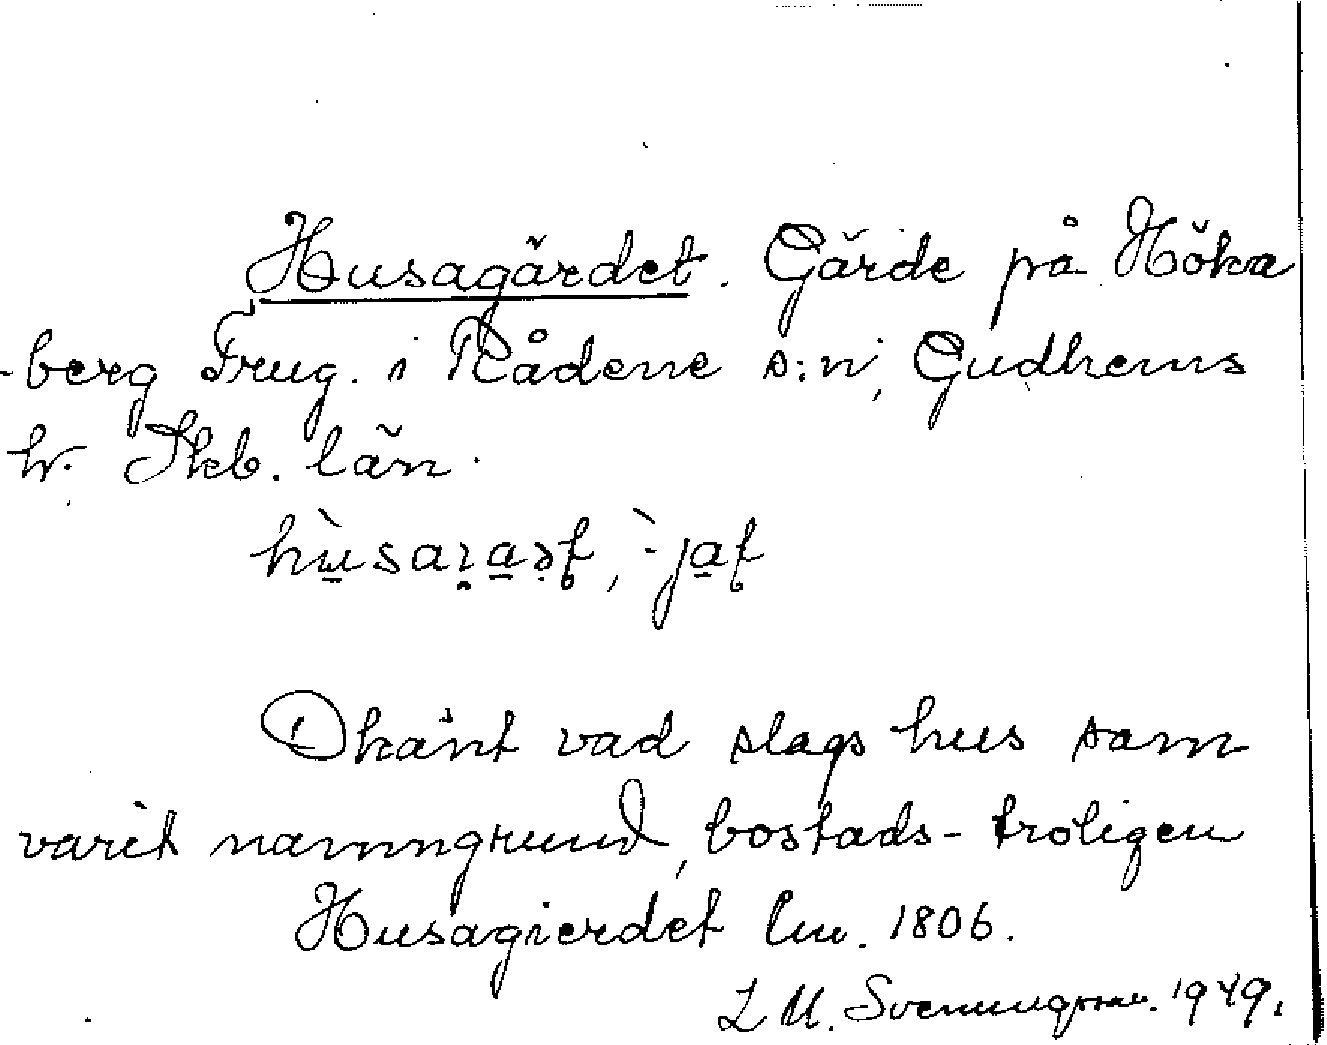 Husagärdet. Gärde på Höka
-berg Frug. i Rådene s:n, Gudhems
hr. Skb. län.
Okänt vad slags hus som
varit namngrund, bostads- troligen
Husagierdet Lm. 1806.
L M. Svenungsson. 1949.